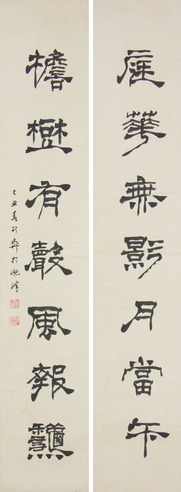 庭華無影月當午
檐樹有聲風報秋